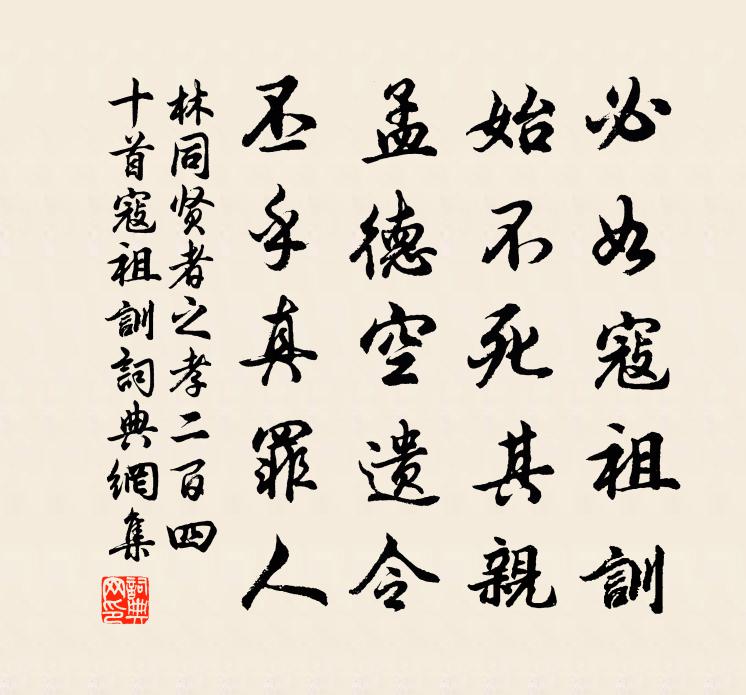 必如寇祖訓
始不死其親
孟德空遺令
丕乎真罪人
林同賢者之孝二百四
十首寇祖訓詞典網集
詞典網印